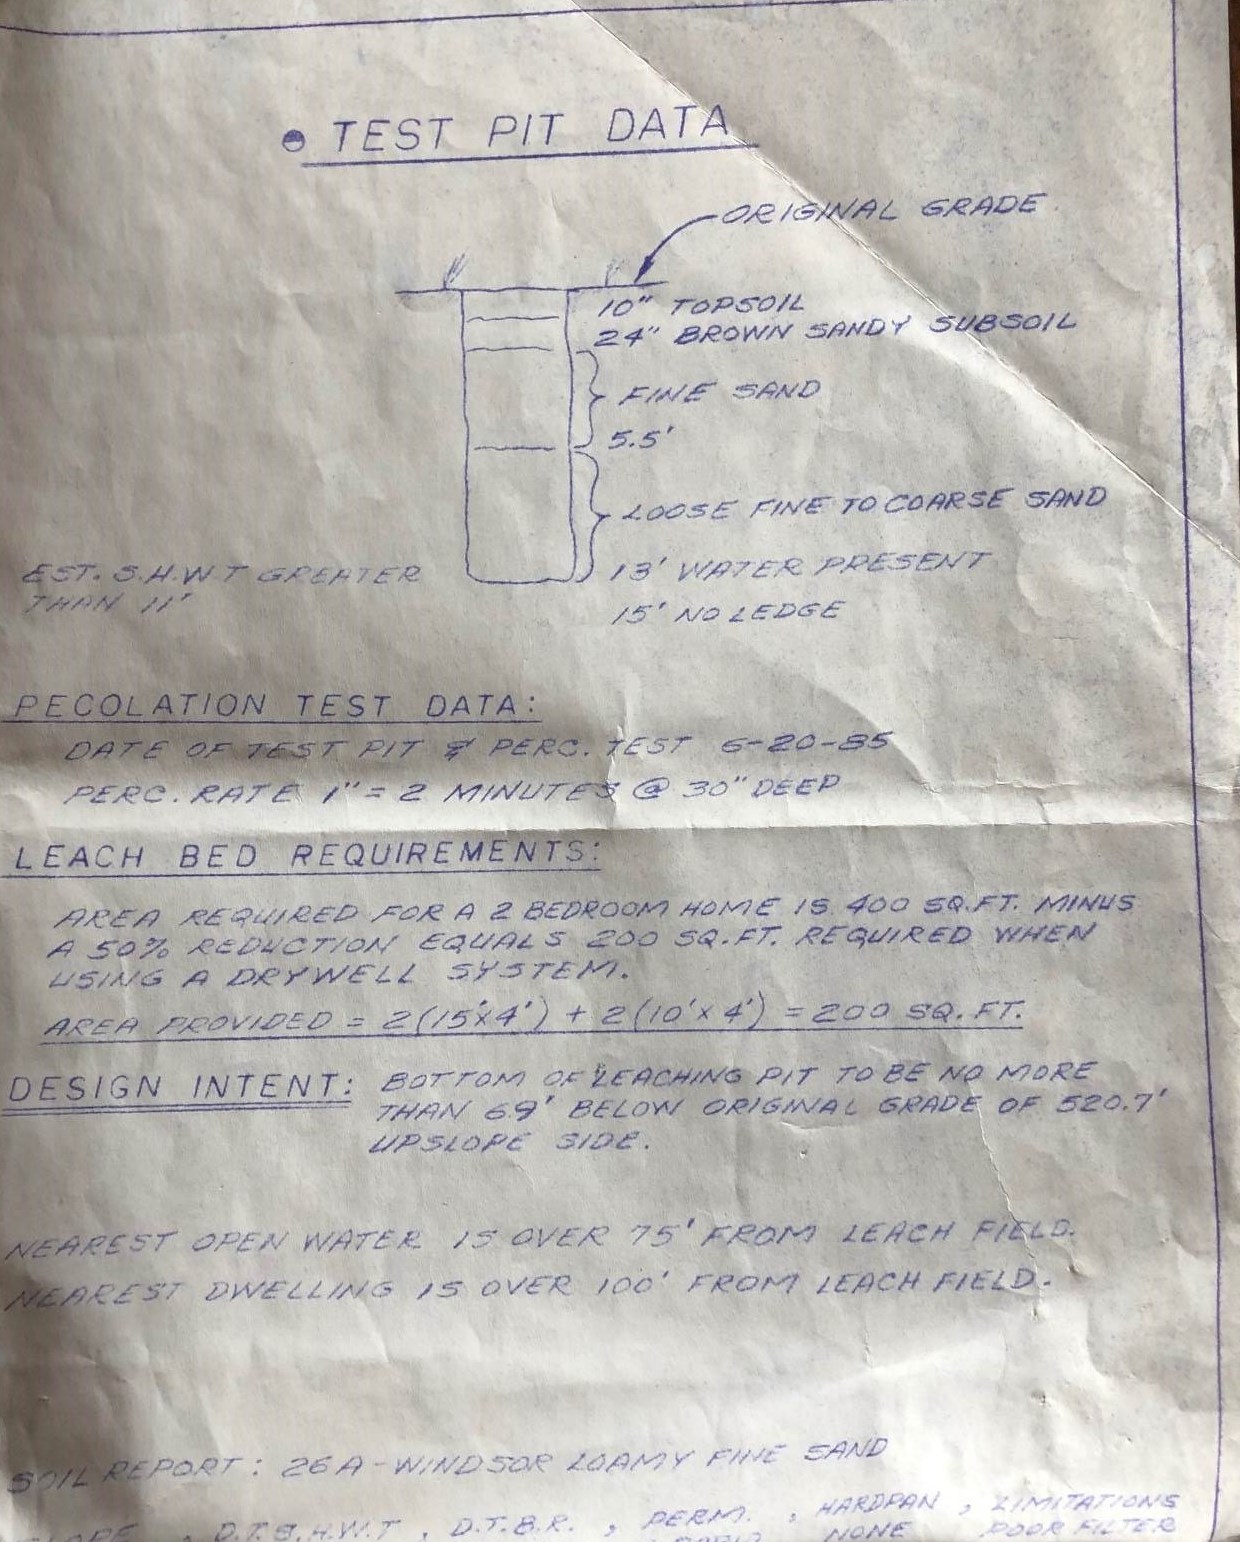 TEST PIT DATA
ORIGINAL GRADE
10" TOPSOIL
24" BROWN SANDY SUBSOIL
FINE SAND
5.5'
LOOSE FINE TO COARSE SAND
13' WATER PRESENT
15' NO LEDGE
EST. S.H.W.T GREATER
THAN 11'
PECOLATION TEST DATA:
DATE OF TEST PIT & PERC. TEST 6-20-85
PERC. RATE 1" = 2 MINUTES @ 30" DEEP
LEACH BED REQUIREMENTS:
AREA REQUIRED FOR A 2 BEDROOM HOME IS 400 SQ.FT. MINUS
A 50% REDUCTION EQUALS 200 SQ.FT. REQUIRED WHEN
USING A DRYWELL SYSTEM.
AREA PROVIDED = 2(15'x4') + 2(10'x4') = 200 SQ.FT.
DESIGN INTENT: BOTTOM OF LEACHING PIT TO BE NO MORE
THAN 6.9' BELOW ORIGINAL GRADE OF 520.7'
UPSLOPE SIDE.
NEAREST OPEN WATER IS OVER 75' FROM LEACH FIELD.
NEAREST DWELLING IS OVER 100' FROM LEACH FIELD.
SOIL REPORT: 26A - WINDSOR LOAMY FINE SAND
SLOPE , D.T.S.H.W.T , D.T.B.R. , PERM. , HARDPAN , LIMITATIONS
NONE POOR FILTER